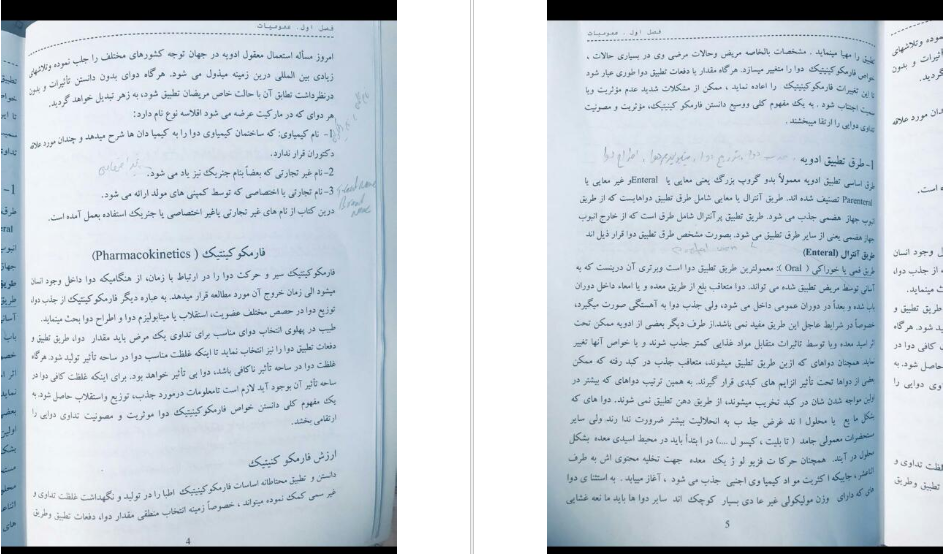 فصل اول، عمومیات
امروز مسأله استعمال معقول ادویه در جهان توجه کشورهای مختلف را جلب نموده وتلاشهای
زیادی بین المللی درین زمینه مبذول می شود. هرگاه دوای بدون دانستن تأثیرات و بدون
درنظرداشت تطابق آن با حالت خاص مریضان تطبیق شود، به زهر تبدیل خواهد گردید.
هر دوای که در مارکیت عرضه می شود اقلاسه نوع نام دارد:
1- نام کیمیاوی: که ساختمان کیمیاوی دوا را به کیمیا دان ها شرح میدهد و چندان مورد علاقه
دکتوران قرار ندارد.
2- نام غیر تجارتی که بعضاً بنام جنریک نیز یاد می شود.
3- نام تجارتی یا اختصاصی که توسط کمپنی های مولد ارائه می شود.
درین کتاب از نام های غیر تجارتی یاغیر اختصاصی یا جنریک استفاده بعمل آمده است.
فارمکو کینتیک ( Pharmacokinetics)
فارمکوکینتیک سیر و حرکت دوا را در ارتباط با زمان، از هنگامیکه دوا داخل وجود انسان
میشود الی زمان خروج آن مورد مطالعه قرار میدهد. به عباره دیگر فارمکوکینتیک از جذب دوا،
توزیع دوا در حصص مختلف عضویت، استقلاب یا میتابولیزم دوا و اطراح دوا بحث مینماید.
طبیب در پهلوی انتخاب دوای مناسب برای تداوی یک مرض باید مقدار دوا، طریق تطبیق و
دفعات تطبیق دوا را نیز انتخاب نماید تا اینکه غلظت مناسب دوا در ساحه تأثیر تولید شود. هرگاه
غلظت دوا در ساحه تأثیر ناکافی باشد، دوا بی تأثیر خواهد بود. برای اینکه غلظت کافی دوا در
ساحه تأثیر آن بوجود آید لازم است تامعلومات درمورد جذب، توزیع واستقلاب حاصل شود. به
یک مفهوم کلی دانستن خواص فارمکوکینیتیک دوا موثریت و مصونیت تداوی دوایی را
ارتقامی بخشد.
ارزش فارمکو کنیتیک
دانستن و تطبیق محتاطانه اساسات فارمکوکینیتیک اطبا را در تولید و نگهداشت غلظت تداوی و
غیر سمی کمک نموده میتواند ، خصوصاً زمینه انتخاب منطقی مقدار دوا، دفعات تطبیق وطریق
4
فصل اول ، عمومیات
تطبیق را مهیا مینماید . مشخصات بالخاصه مریض وحالات مرضی وی در بسیاری حالات ،
خواص فارمکوکینیتیک دوا را متغیر میسازد. هرگاه مقدار یا دفعات تطبیق دوا طوری عیار شود
تا این تغییرات فارمکوکینیتیک را اعاده نماید ، ممکن از مشکلات شدید عدم مؤثریت ویا
سمیت اجتناب شود . به یک مفهوم کلی ووسیع دانستن فارمکو کینیتیک، مؤثریت و مصونیت
تداوی دوایی را ارتقا میبخشند .
1-طرق تطبیق ادویه
طرق اساسی تطبیق ادویه معمولاً بدو گروپ بزرگ یعنی معایی یا Enteral و غیر معایی یا
Parenteral تصنیف شده اند. طریق آنترال یا معایی شامل طرق تطبیق دواهایست که از طریق
انبوب جهاز هضمی جذب می شود. طریق تطبیق پرآنترال شامل طرق است که از خارج انبوب
جهاز هضمی یعنی از سایر طرق تطبیق می شود. بصورت مشخص طرق تطبیق دوا قرار ذیل اند
طریق آنترال (Enteral)
طریق فمی یا خوراکی ( Oral ): معمولترین طریق تطبیق دوا است وبرتری آن درینست که به
آسانی توسط مریض تطبیق شده می تواند. دوا متعاقب بلع از طریق معده و یا امعاء داخل دوران
باب شده و بعداً در دوران عمومی داخل می شود، ولی جذب دوا به آهستگی صورت میگیرد،
خصوصاً در شرایط عاجل این طریق مفید نمی باشد.از طرف دیگر بعضی از ادویه ممکن تحت
اثر اسید معده ویا توسط تاثیرات متقابل مواد غذایی کمتر جذب شوند و یا خواص آنها تغییر
نماید همچنان دواهای که ازین طریق تطبیق میشوند، متعاقب جذب در کبد رفته که ممکن
بعضی از دواها تحت تأثیر انزایم های کبدی قرار گیرند. به همین ترتیب دواهای که بیشتر در
اولین مواجه شدن شان در کبد تخریب میشوند، از طریق دهن تطبیق نمی شوند. دوا های که
بشکل ما یع یا محلول ا ند غرض جذ ب به انحلالیت بیشتر ضرورت ندا رند ولی سایر
مستحضرات معمولی جامد ( تا بلیت ، کپسو ل ....) در ا بتدأ باید در محیط اسیدی معده بشکل
محلول در آیند. همچنان حرکا ت فزیو لو ژ یک معده جهت تخلیه محتوی اش به طرف
اثناعشر ، جاییکه ا کثریت مو اد کیمیا وی اجنبی جذب می شود ، آغاز مییابد . به استثنا ی دوا
های که دارای وزن مولیکولی غیر عا دی بسیار کوچک اند سایر دوا ها باید ما نعه غشایی
5